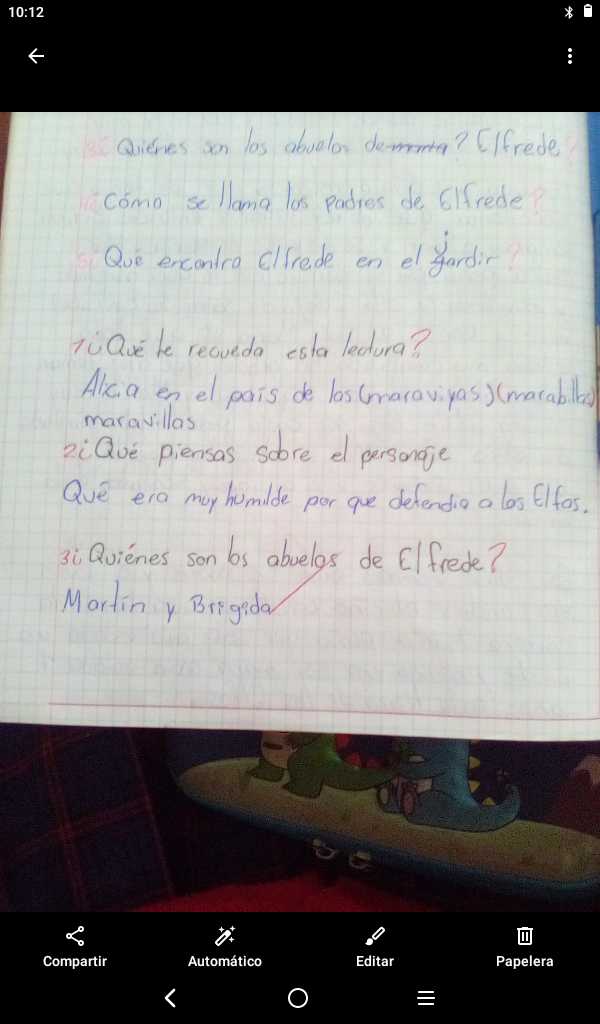 10:12
3¿Quiénes son los abuelos de mmta? Elfrede?
4¿Cómo se llama los padres de Elfrede?
5¿Qué encontro Elfrede en el jardir?
1¿Qué te recueda esta lectura?
Alicia en el país de las (maraviyas) (marabillas)
maravillas
2¿Qué piensas sobre el personaje
Qué era muy humilde por que defendia a los Elfos.
3¿Quiénes son los abuelos de Elfrede?
Martín y Brigada
Compartir
Automático
Editar
Papelera